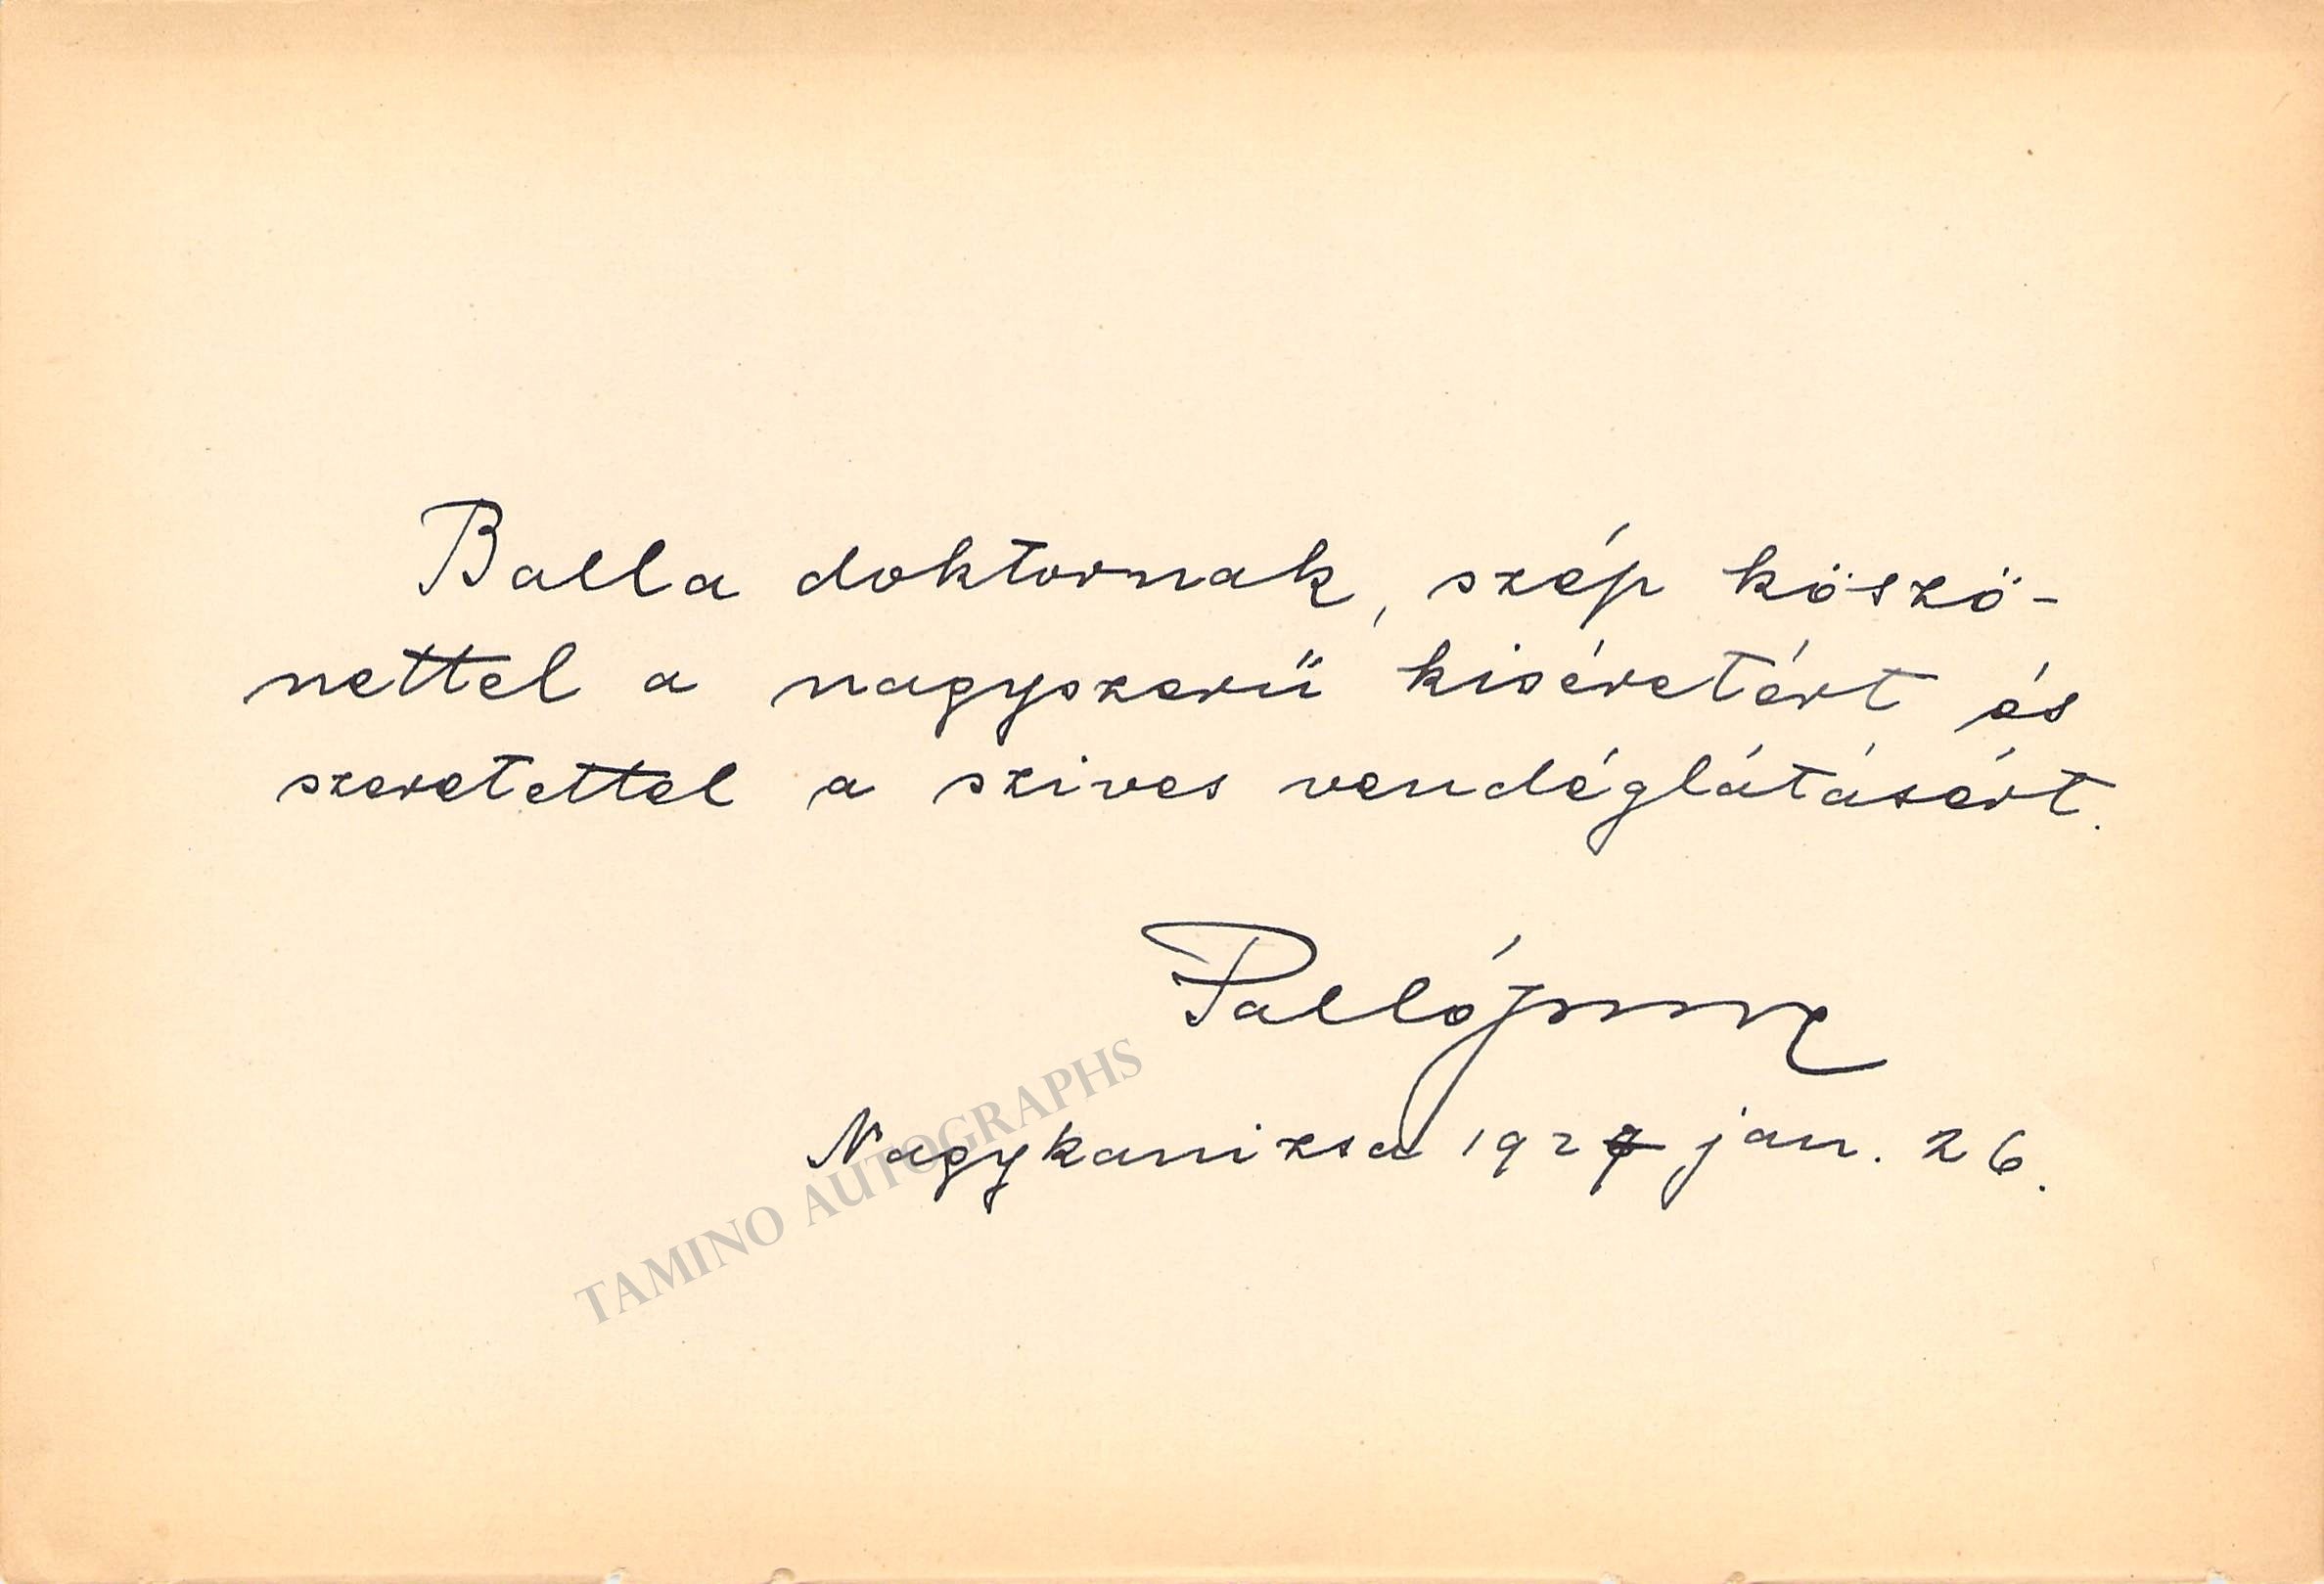 Balla doktornak, szép köszö-
nettel a nagyszerű kiséretért és
szeretettel a szives vendéglátásért.
Palló Imre
Nagykanizsa 1927 jan. 26.
TAMINO AUTOGRAPHS